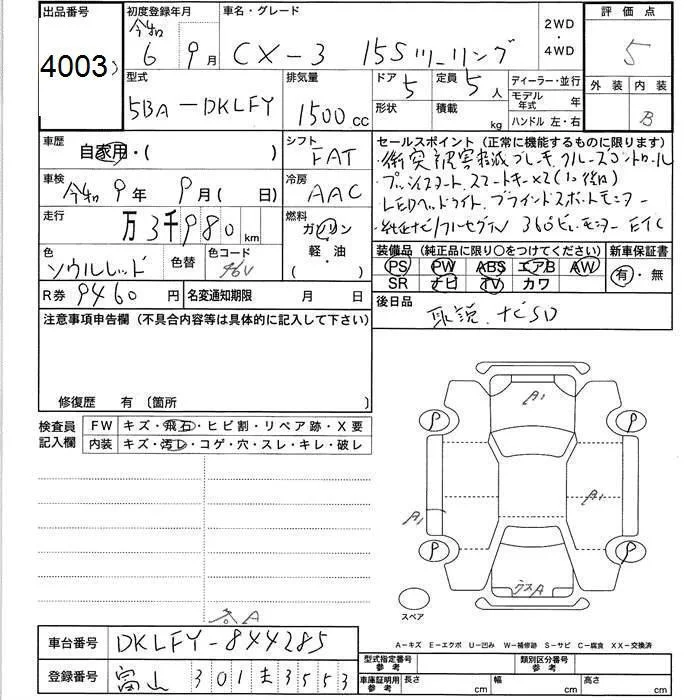 出品番号
4003
初度登録年月
令和
6 9月
車名・グレード
CX-3 15Sツーリング
2WD
・
4WD
評価点
5
外装 内装
B
型式
5BA-DKLFY
排気量
1500cc
ドア 5
定員 5人
形状
積載 kg
ディーラー・並行
モデル年式 年
ハンドル 左・右
車歴
自家用・( )
シフト
FAT
車検
令和 9年 9月( 日)
冷房
AAC
走行
万 3千 980 km
燃料
ガソリン
軽・油
( )
色
ソウルレッド
色替
色コード
46V
R券 9460円
名変通知期限 月 日
セールスポイント(正常に機能するものに限ります)
・衝突被害軽減ブレーキ クルーズコントロール
・プッシュスタート スマートキー×2(
・LEDヘッドライト ブラインドスポットモニター
・純正ナビ/フルセグTV 360°ビューモニター ETC
装備品(純正品に限り○をつけてください)
PS PW ABS エアB AW
SR ナビ TV カワ
新車保証書
有・無
後日品
取説、ナビSD
注意事項申告欄(不具合内容等は具体的に記入して下さい)
修復歴 有〔箇所 〕
検査員記入欄
FW キズ・飛石・ヒビ割・リペア跡・X要
内装 キズ・汚レ・コゲ・穴・スレ・キレ・破レ
A1
P
P
A1
A1
P
P
スペア
A
A-キズ E-エクボ U-凹み W-補修跡 S-サビ C-腐食 XX-交換済
車台番号 DKLFY-844285
登録番号 富山 301 ま 3553
型式指定番号 参考
類別区分番号 参考
車庫証明用参考 長さ cm 幅 cm 高さ cm